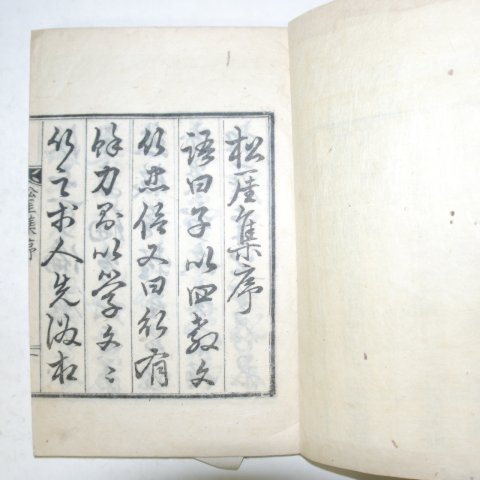 松厓集序
語曰子以四敎文
行忠信又曰行有
餘力則以學文文
行之於人先後本
松厓集序